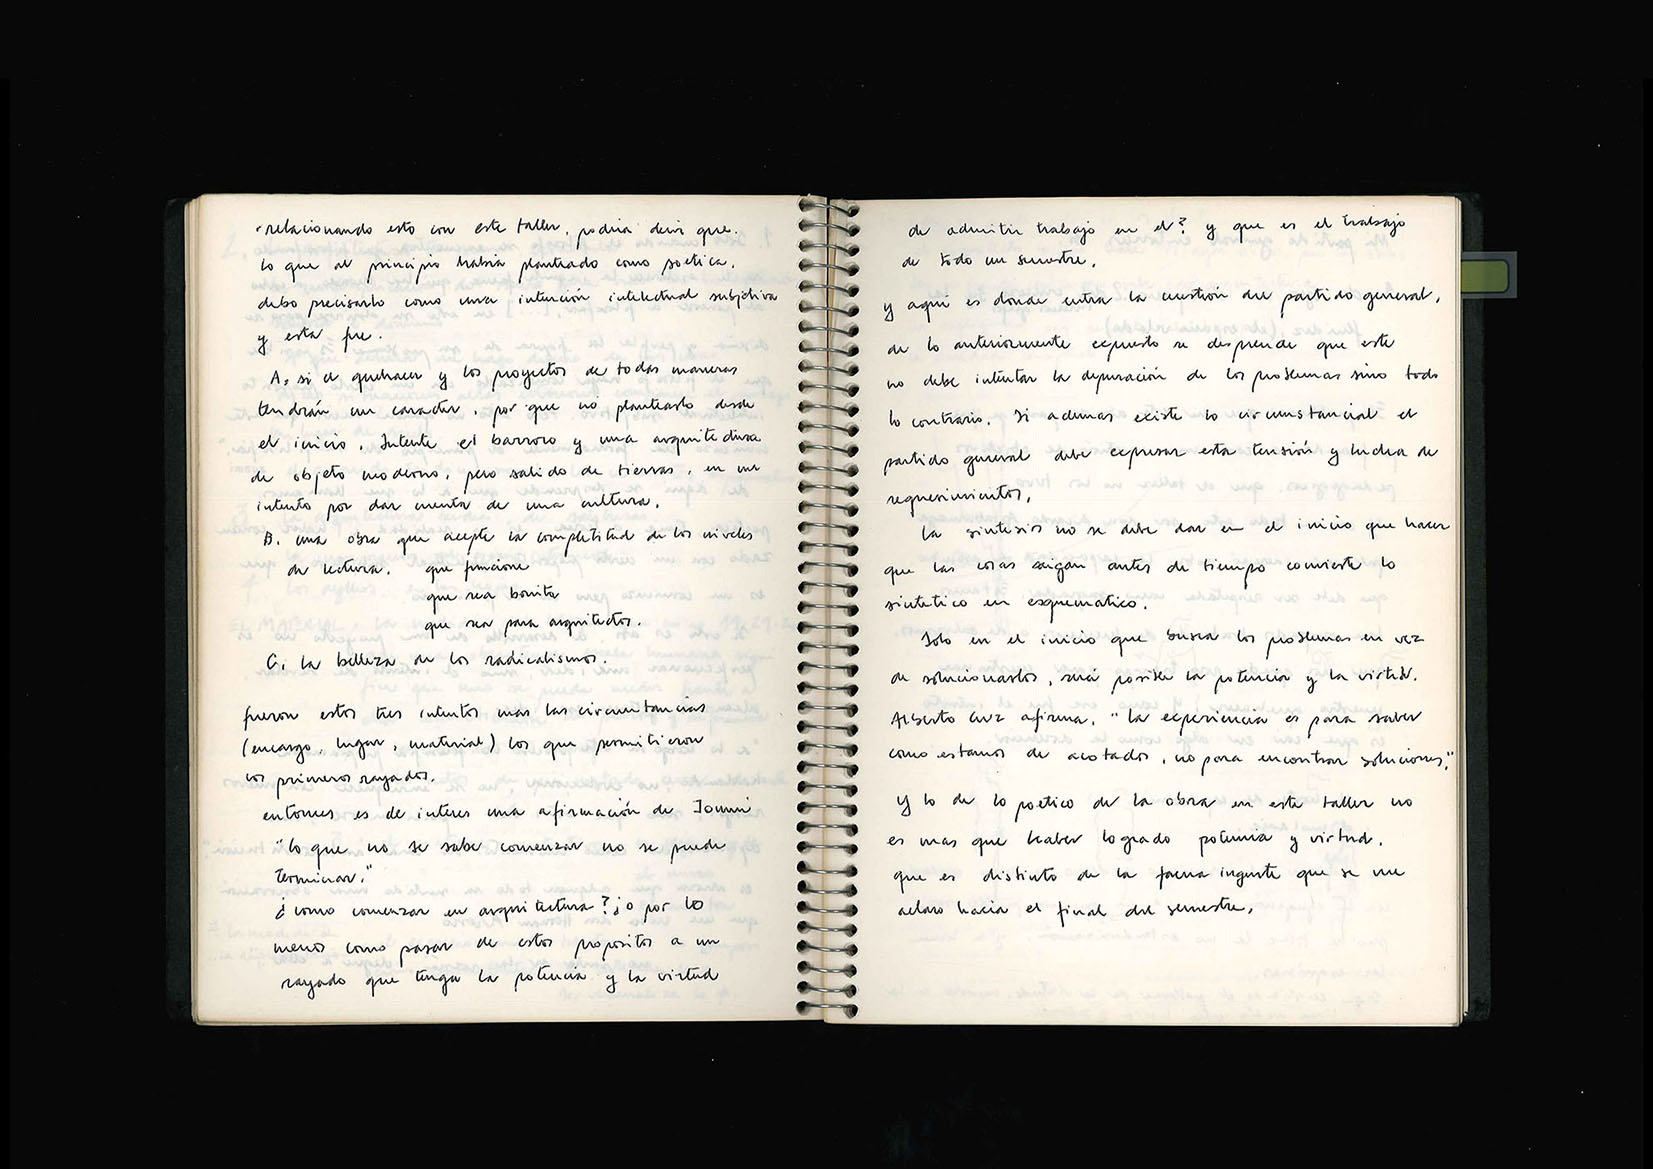 relacionando esto con este taller, podria decir que.
lo que al principio habia planteado como poetica,
debo precisarlo como una intención intelectual subjetiva
y esta fue.
A. si el quehacer y los proyectos de todas maneras
tendrán un caracter, por que no plantearlo desde
el inicio. Intente el barroco y una arquitectura
de objeto moderno, pero salido de tierras, en un
intento por dar cuenta de una cultura.
B. una obra que acepte la completitud de los niveles
de lectura. que funcione
que sea bonita
que sea para arquitectos.
C. la belleza de los radicalismos.
fueron estos tres intentos mas las circunstancias
(encargo, lugar, material) los que permitieron
los primeros rayados.
entonces es de interes una afirmación de Iommi
"lo que no se sabe comenzar no se puede
terminar."
¿como comenzar en arquitectura? ¿o por lo
menos como pasar de estos propositos a un
rayado que tenga la potencia y la virtud
de admitir trabajo en el? y que es el trabajo
de todo un semestre.
y aqui es donde entra la cuestión del partido general,
de lo anteriormente expuesto se desprende que este
no debe intentar la depuración de los problemas sino todo
lo contrario. Si ademas existe lo circunstancial el
partido general debe expresar esta tensión y lucha de
requerimientos.
La sintesis no se debe dar en el inicio que hacer
que las cosas caigan antes de tiempo convierte lo
sintetico en esquematico.
Solo en el inicio que busca los problemas en vez
de solucionarlos, será posible la potencia y la virtud.
Alberto Cruz afirma. "la experiencia es para saber
como estamos de acotados, no para encontrar soluciones."
y lo de lo poetico de la obra en este taller no
es mas que haber logrado potencia y virtud.
que es distinto de la faena ingente que se me
aclaro hacia el final del semestre.